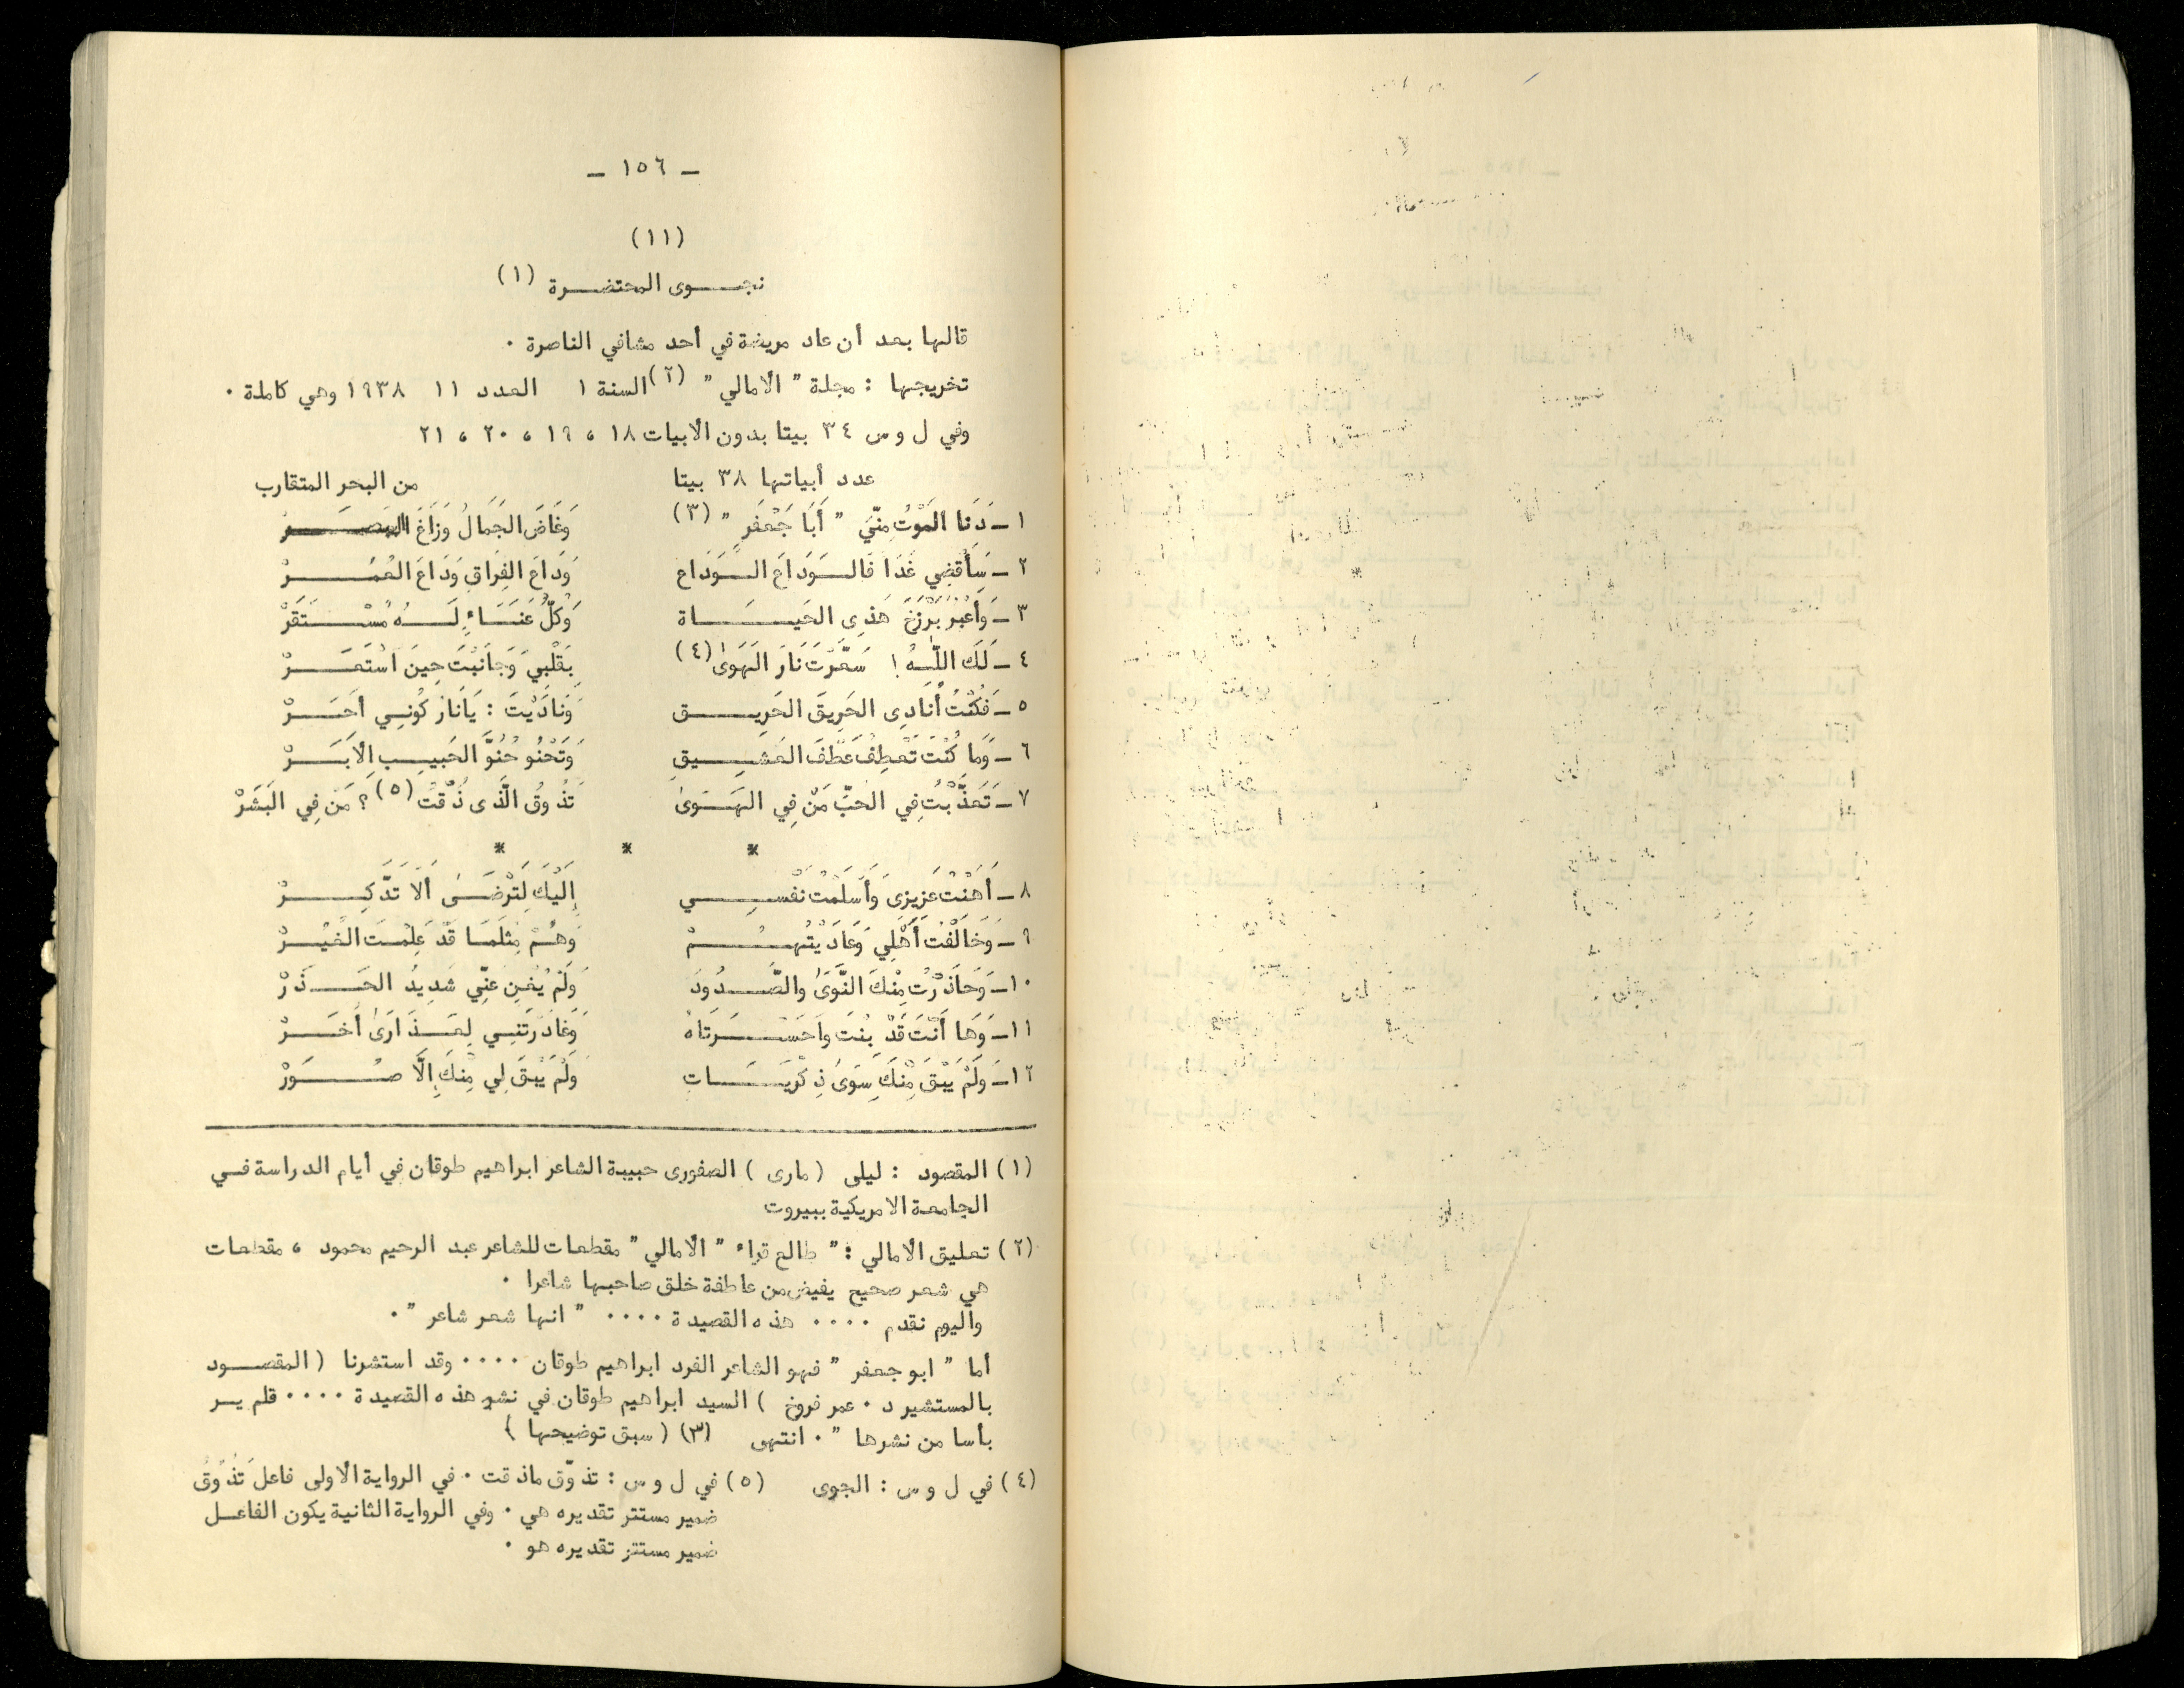 ـ ١٥٦ ـ
(١١)
نجـــوى المحتضـــرة (١)
قالها بعد أن عاد مريضة في أحد مشافي الناصرة ٠
تخريجها : مجلة " الأمالي " (٢) السنة ١ العدد ١١ ١٩٣٨ وهي كاملة ٠
وفي ل و س ٣٤ بيتا بدون الأبيات ١٨ ، ١٩ ، ٢٠ ، ٢١
عدد أبياتها ٣٨ بيتا من البحر المتقارب
١ ـ دَنَا المَوْتُ مِنّيَ " أَبَا جَعْفَرٍ " (٣) وَغَاضَ الجَمَالُ وَزَاغَ البصـــر
٢ ـ سَأَقضِي غَدَا فَالــوَدَاعَ الــوَدَاع وَدَاعَ الفِرَاقِ وَدَاعَ العُمُـــرْ
٣ ـ وَأَعْبُرُ بَرْزَخَ هَذِى الحَيَـــاة وَكُلُّ عَنَـــاءٍ لَـــهُ مُسْـــتَقَرْ
٤ ـ لَكَ اللّـــهُ ! سَعَّرْتَ نَارَ الهَوَىٰ (٤) بِقَلْبِي وَجَانَبْتَ حِينَ اسْتَعَـــرْ
٥ ـ فَكُنْتُ أُنَادِى الحَرِيقَ الحَرِيـــق وَنَادَيْتَ : يَانَارُ كُونِـــي أَحَـــرْ
٦ ـ وَمَا كُنْتَ تَعطِفُ عَطْفَ العَشِـــيقِ وَتَحْنُو حُنُوَّ الحَبِيـــبِ الأَبَـــرْ
٧ ـ تَعَذَّبْتُ فِي الحُبِّ مَنْ فِي الهَـــوَىٰ تَذُوقُ الَّذى ذُقْتُ (٥) ؟ مَن فِي البَشَرْ
* * *
٨ ـ أَهَنْتُ عَزِيزِىَ وَأَسَلَمْتُ نَفْسِـــي إِلَيْكَ لِتَرْضَـــىٰ أَلَا تَدَّكِـــرْ
٩ ـ وَخَالَفْت أَهْلِي وَعَادَيْتُهـــمْ وَهُمْ مِثلَمَا قَدْ عَلِمْتَ الخُيُـــرْ
١٠ ـ وَحَاذَرْتُ مِنْكَ النَّوَىٰ والصُّـــدُودَ وَلَمْ يُغنِ عَنِّي شَدِيدُ الحَـــذَرْ
١١ ـ وَهَا أَنْتَ قَدْ بِنْتَ واَحَسْـــرَتَاهْ وَغَادَرْتَنِـــي لِعَـــذَارَىٰ أُخَـــرْ
١٢ ـ وَلَمْ يَبْقَ مِنْكَ سِوَىٰ ذِكْرَيَـــات وَلَمْ يَبْقَ لِي مِنْكَ إلَّا صُـــوَرْ
(١) المقصود : ليلى (مارى) الصفورى حبيبة الشاعر ابراهيم طوقان في أيام الدراسة فـــي
الجامعة الامريكية ببيروت
(٢) تعليق الأمالي : " طالع قراء " الأمالي " مقطعات للشاعر عبد الرحيم محمود ، مقطعات
هي شعر صحيح يفيض من عاطفة خلق صاحبها شاعرا ٠
واليوم نقدم ٠٠٠٠ هذه القصيدة ٠٠٠٠ " انها شعر شاعر " ٠
أما " ابو جعفر " فهو الشاعر الفرد ابراهيم طوقان ٠٠٠٠ وقد استشرنا ( المقصـــود
بالمستشير د ٠ عمر فروخ ) السيد ابراهيم طوقان في نشر هذه القصيدة ٠٠٠٠ فلم يـــر
بأسا من نشرها " ٠ انتهى (٣) ( سبق توضيحها )
(٤) في ل و س : الجوى (٥) في ل و س : تذوّق ماذقت ٠ في الرواية الأولى فاعل تذوق
ضمير مستتر تقديره هي ٠ وفي الرواية الثانية يكون الفاعـــل
ضمير مستتر تقديره هو ٠